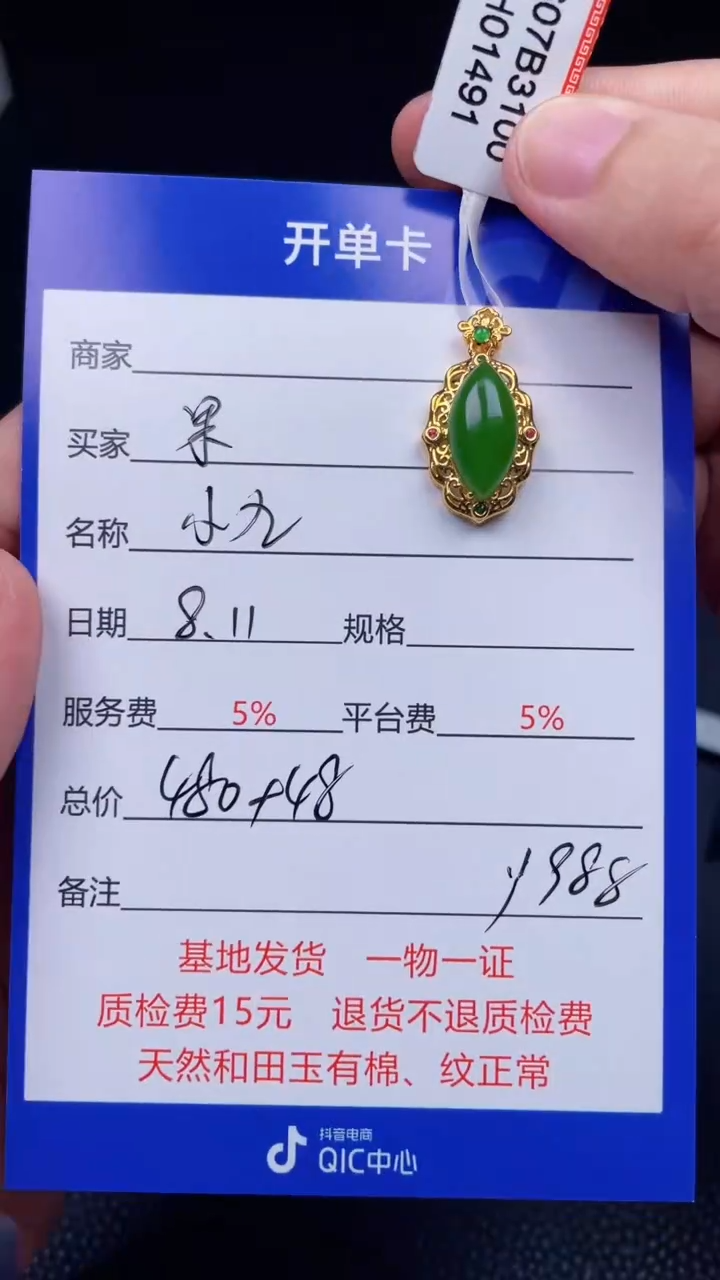 C07B3100
H01491
开单卡
商家
买家 果
名称 小九
日期 8.11 规格
服务费 5% 平台费 5%
总价 480+48
备注 y988
基地发货 一物一证
质检费15元 退货不退质检费
天然和田玉有棉、纹正常
抖音电商
QIC中心